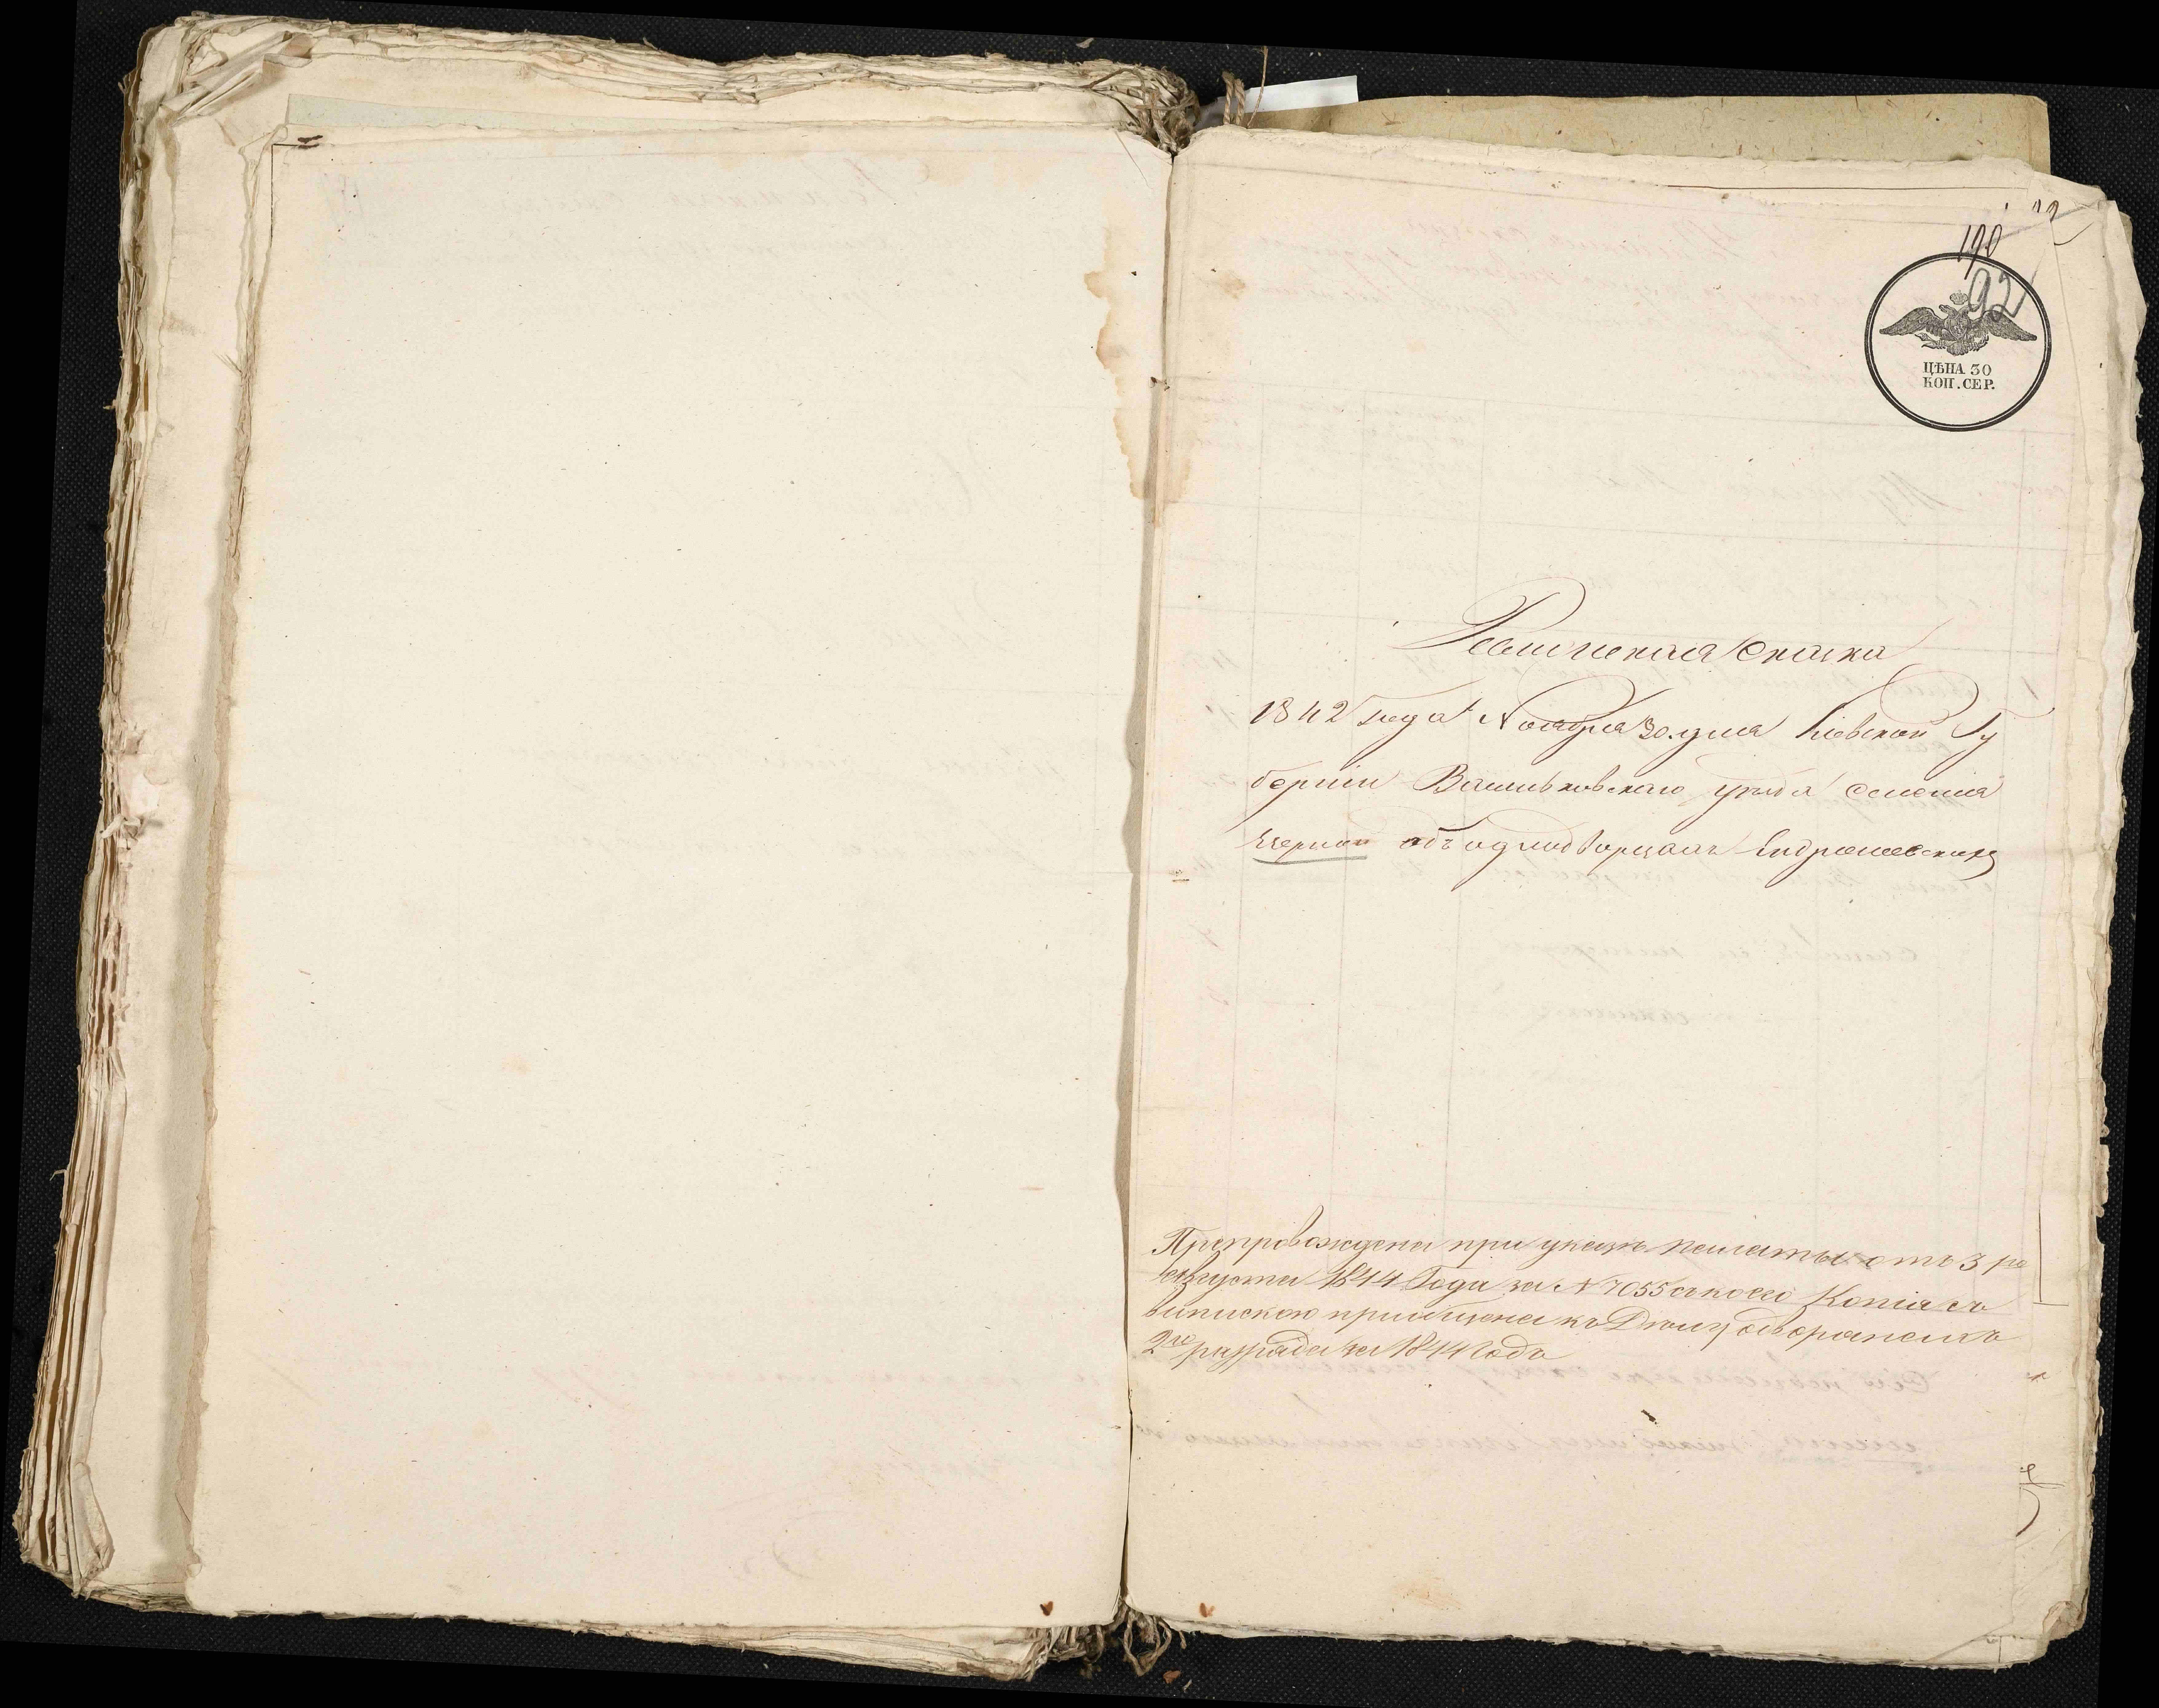 190
92
ЦѢНА 30
КОП. СЕР.
Ревизская Сказка
1842 года Ноября 30 дня Кіевской Гу
берніи Васильковскаго уѣзда селенія
Чернин объ однодворцахъ
Препровождена при указѣ палаты отъ 3 го
Августа 1844 Года за N 7055 съ коего Копія съ
выпискою пріобщена къ Дѣлу
2го разряда за 1844 Годъ